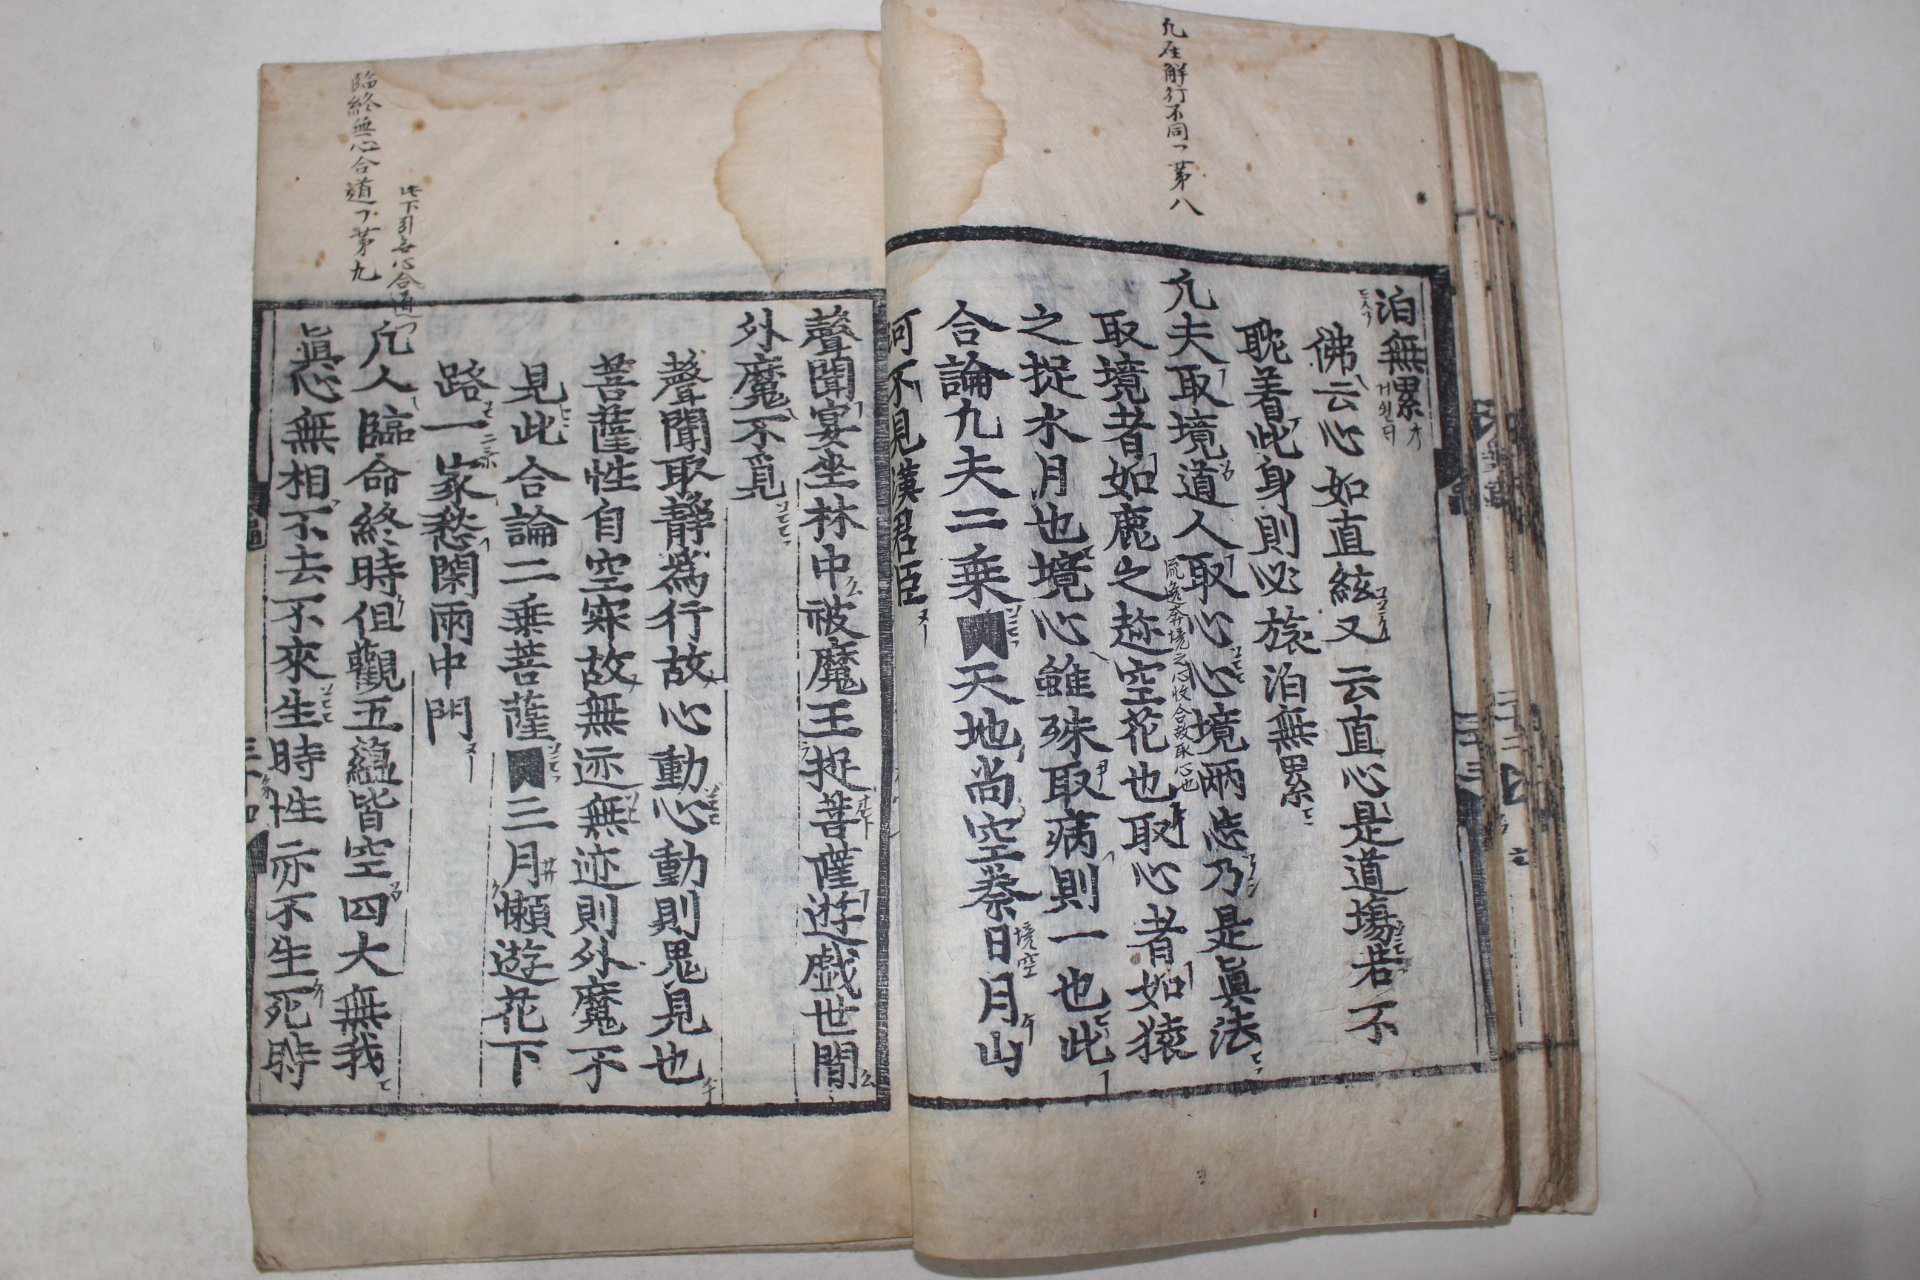 凡在解行不同一第八
泊無累
佛云心如直絃又云直心是道塲若不
耽着此身則必旅泊無累
凢夫取境道人取心心境兩忘乃是眞法
流逸奔境之心收合故取心也
取境者如鹿之趂空花也取心者如猿
之捉水月也境心雖殊取病則一也此
合論凢夫二乗
天地尚空秦日月山
境空
河不見漢君臣
聲聞宴坐林中被魔王捉菩薩遊戯世間
外魔不覓
聲聞取靜爲行故心動心動則鬼見也
菩薩性自空寂故無迹無迹則外魔不
見此合論二乗菩薩
三月懶遊花下
路一家愁閉雨中門
此下引無心合道
凢人臨命終時但觀五蘊皆空四大無我
臨終無心合道下第九
眞心無相不去不來生時性亦不生死時